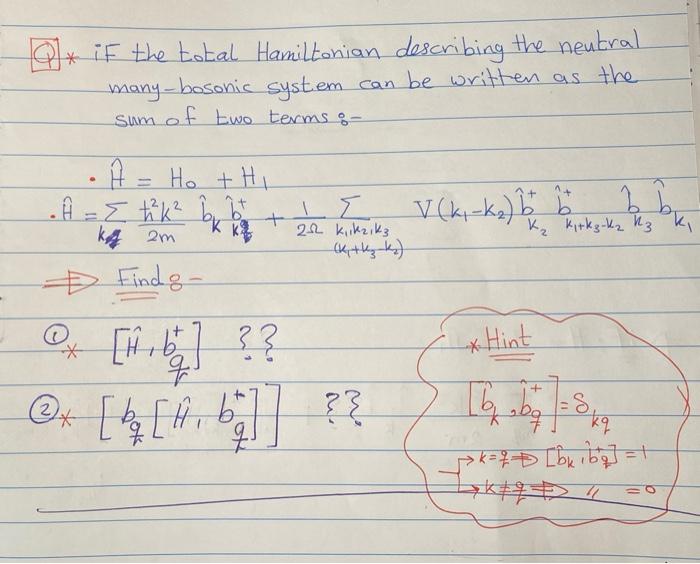 Q * if the total Hamiltonian describing the neutral
many-bosonic system can be written as the
sum of two terms :-
• Ĥ = H₀ + H₁
• Ĥ = Σ_k ħ²k²/2m b̂_k b̂⁺_k + 1/2Ω Σ_{k₁,k₂,k₃ (k₁+k₃-k₂)} V(k₁-k₂) b̂⁺_{k₂} b̂⁺_{k₁+k₃-k₂} b̂_{k₃} b̂_{k₁}
⇒ Find :-
① * [Ĥ, b⁺_q] ??
② * [b_q [Ĥ, b⁺_q]] ??
* Hint
[b̂_k, b̂⁺_q] = δ_kq
→ k=q ⇒ [b̂_k, b̂⁺_q] = 1
→ k≠q ⇒ " = 0